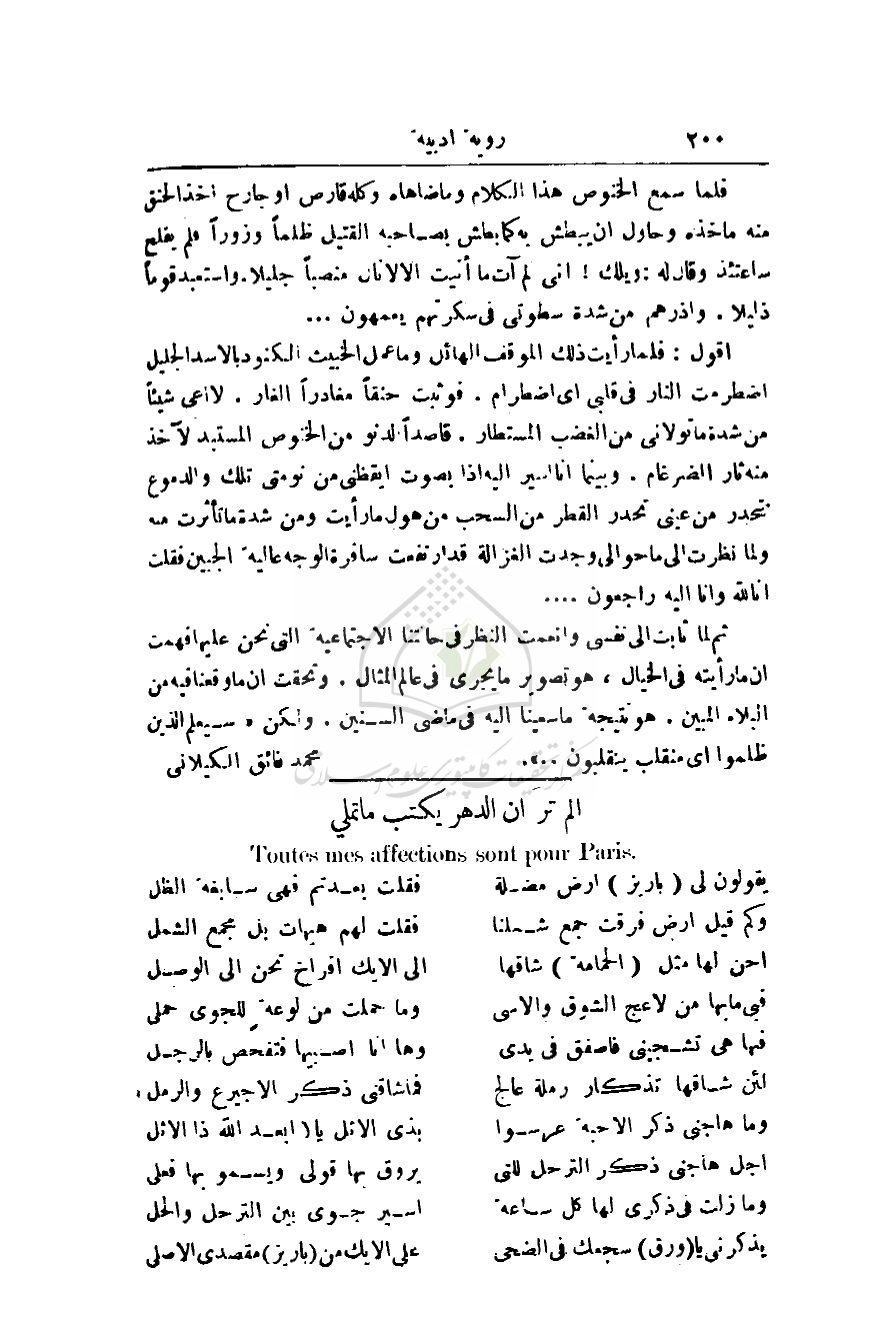 ٢٠٠ روية ادبية
فلما سمع الخنوص هذا الكلام وماضاهاه وكله قارص او جارح اخذ الحنق
منه ماخذه وحاول ان يبطش به كما بطش بصاحبه القتيل ظلماً وزوراً فلم يفلح
ساعتئذ وقال له : ويلك ! انى لم آت ما أتيت الا لانال منصباً جليلا. واستعبد قوماً
ذليلا . واذرهم من شدة سطوتى فى سكرتهم يعمهون ...
اقول : فلما رأيت ذلك الموقف الهائل وما عمل الخبيث الكنود بالاسد الجليل
اضطرمت النار فى قلبى اى اضطرام . فوثبت حنقاً مغادراً الغار . لا اعى شيئاً
من شدة ما تولانى من الغضب المستطار . قاصداً الدنو من الخنوص المستبد لآخذ
منه ثار الضرغام . وبينما انا اسير اليه اذا بصوت ايقظنى من نومتى تلك والدموع
تتحدر من عينى تحدر القطر من السحب من هول ما رأيت ومن شدة ما تأثرت منه
ولما نظرت الى ما حوالى وجدت الغزالة قد ارتفعت سافرة الوجه عالية الجبين فقلت
انا لله وانا اليه راجعون ....
ثم لما ثابت الى نفسى وانعمت النظر فى حالتنا الاجتماعية التى نحن عليها فهمت
ان ما رأيته فى الخيال ، هو تصوير ما يجرى فى عالم المثال . وتحققت ان ما وقعنا فيه من
البلاء المبين . هو نتيجة ما سعينا اليه فى ماضى السنين . ولكن « سيعلم الذين
ظلموا اى منقلب ينقلبون ..». محمد فائق الكيلانى
الم تر ان الدهر يكتب ماتملي
Toutes mes affections sont pour Paris.
يقولون لى ( باريز ) ارض مضلة فقلت بعدتم فهى سابغة الظل
وكم قيل ارض فرقت جمع شملنا فقلت لهم هيهات بل مجمع الشمل
احن لها مثل ( الحمامة ) شاقها الى الايك افراخ تحن الى الوصل
فبى مابها من لاعج الشوق والاسى وما حملت من لوعة للجوى حملى
فها هى تشجينى فاصفق فى يدى وها انا اصبيها فتفحص بالرجل
لئن شاقها تذكار رملة عالج فما شاقنى ذكر الاجيرع والرمل
وما هاجنى ذكر الاحبة عرسوا بذى الاثل يا ( ابعد الله ذا الاثل
اجل هاجنى ذكر الترحل للتى يروق بها قولى ويسمو بها فعلى
وما زلت فى ذكرى لها كل ساعة اسير جوى بين الترحل والحل
يذكرنى يا (ورق) سجعك فى الضحى على الايك من (باريز) مقصدى الاصلى
مركز تحقيقات كامپيوترى علوم اسلامى